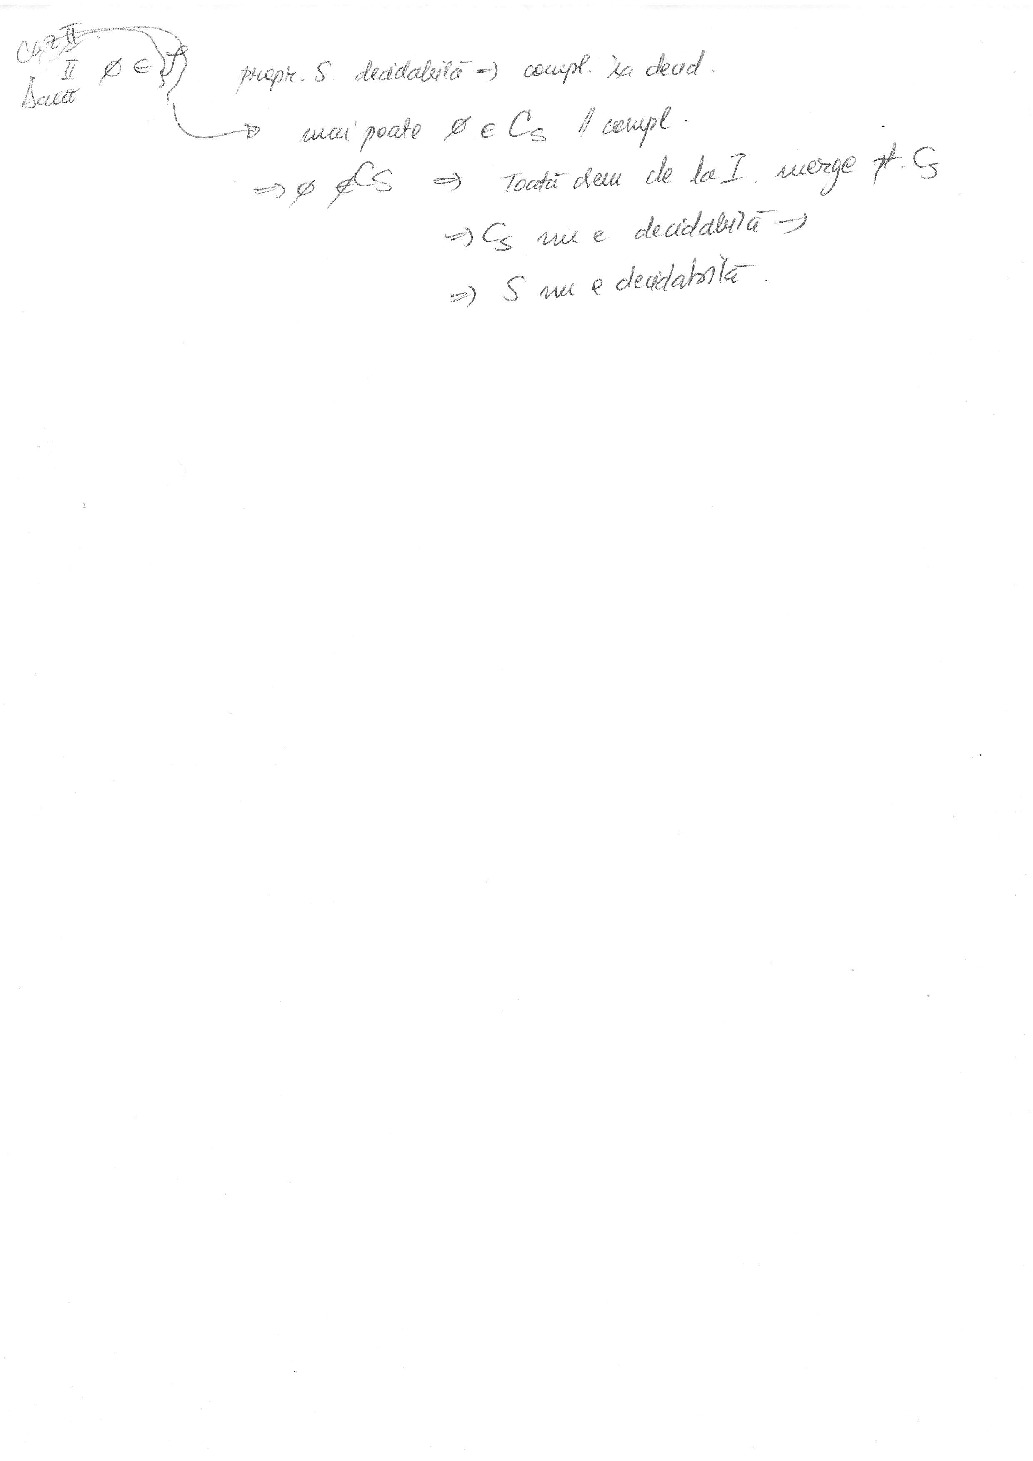 Caz II
II ∅ ∈ S propr. S decidabilă ⇒ compl. ei decid.
Dacă
mai poate ∅ ∈ C_S // compl.
⇒ ∅ ∉ C_S ⇒ Toată dem de la I merge pt. C_S
⇒ C_S nu e decidabilă ⇒
⇒ S nu e decidabilă.